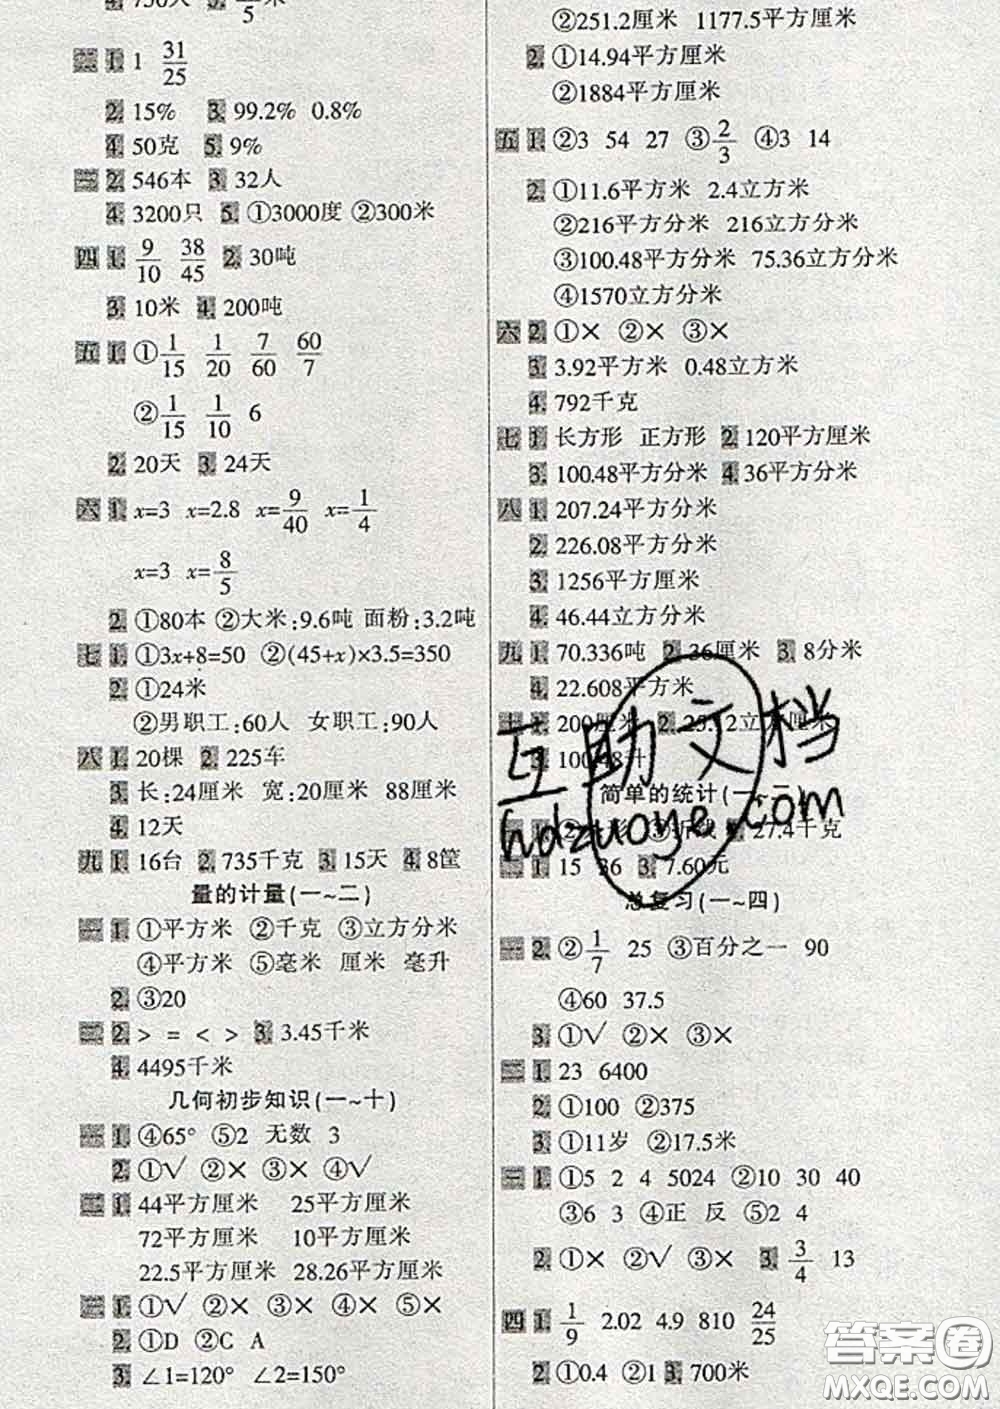 750人 /5米
二 1. 1 31/25
2. 15% 3. 99.2% 0.8%
4. 50克 5. 9%
三 2. 546本 3. 32人
4. 3200只 5. ①3000度 ②300米
四 1. 9/10 38/45 2. 30吨
3. 10米 4. 200吨
五 1. ①1/15 1/20 7/60 60/7
②1/15 1/10 6
2. 20天 3. 24天
六 1. x=3 x=2.8 x=9/40 x=1/4
x=3 x=8/5
2. ①80本 ②大米:9.6吨 面粉:3.2吨
七 1. ①3x+8=50 ②(45+x)×3.5=350
2. ①24米
②男职工:60人 女职工:90人
八 1. 20棵 2. 225车
3. 长:24厘米 宽:20厘米 88厘米
4. 12天
九 1. 16台 2. 735千克 3. 15天 4. 8筐
量的计量(一~二)
一 1. ①平方米 ②千克 ③立方分米
④平方米 ⑤毫米 厘米 毫升
2. ③20
二 2. > = < > 3. 3.45千米
4. 4495千米
几何初步知识(一~十)
一 1. ④65° ⑤2 无数 3
2. ①√ ②× ③× ④√
二 1. 44平方厘米 25平方厘米
72平方厘米 10平方厘米
22.5平方厘米 28.26平方厘米
三 1. ①√ ②× ③× ④× ⑤×
2. ①D ②C A
3. ∠1=120° ∠2=150°
②251.2厘米 1177.5平方厘米
2. ①14.94平方厘米
②1884平方厘米
五 1. ②3 54 27 ③2/3 ④3 14
2. ①11.6平方米 2.4立方米
②216平方分米 216立方分米
③100.48平方分米 75.36立方分米
④1570立方分米
六 2. ①× ②× ③×
3. 3.92平方米 0.48立方米
4. 792千克
七 1. 长方形 正方形 2. 120平方厘米
3. 100.48平方分米 4. 36平方分米
八 1. 207.24平方分米
2. 226.08平方分米
3. 1256平方厘米
4. 46.44立方分米
九 1. 70.336吨 2. 36厘米 3. 8分米
4. 22.608平方米
十 1. 200厘米 2. 25.12立方厘米
3. 100.48升
简单的统计(一~二)
③折线 27.4千克
二 1. 15 36 3. 7.60元
总复习(一~四)
一 2. ②1/7 25 ③百分之一 90
④60 37.5
3. ①√ ②× ③×
二 1. 23 6400
2. ①100 ②375
3. ①11岁 ②17.5米
三 1. ①5 2 4 5024 ②10 30 40
③6 3 ④正 反 ⑤2 4
2. ①× ②√ ③× 3. 3/4 13
四 1. 1/9 2.02 4.9 810 24/25
2. ①0.4 ②1 3. 700米
互助文档
hdzuoye.com
答案圈
MXQE.COM